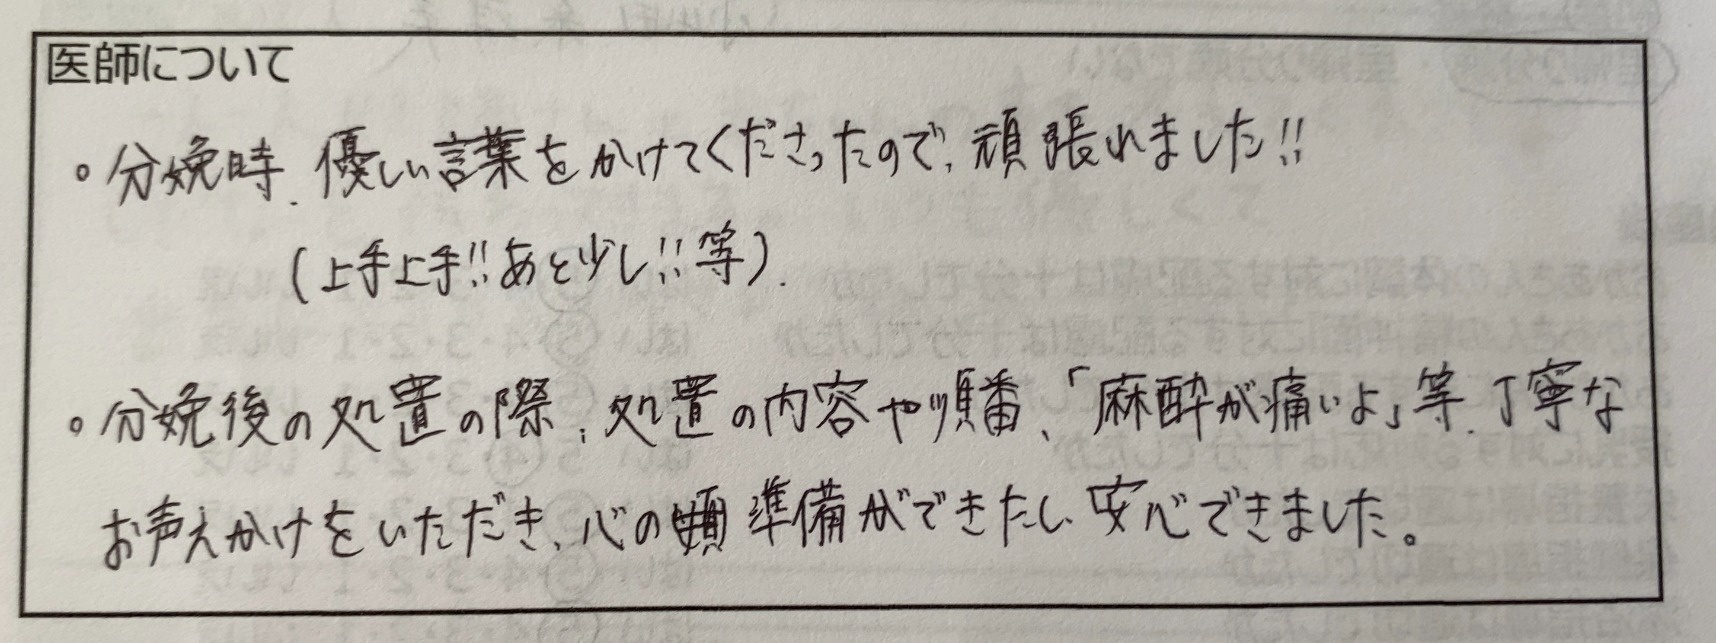 医師について
。分娩時、優しい言葉をかけてくださったので、頑張れました!!
(上手上手!!あと少し!!等).
。分娩後の処置の際、処置の内容や順番、「麻酔が痛いよ」等、丁寧な
お声えかけをいただき、心の準備ができたし、安心できました。